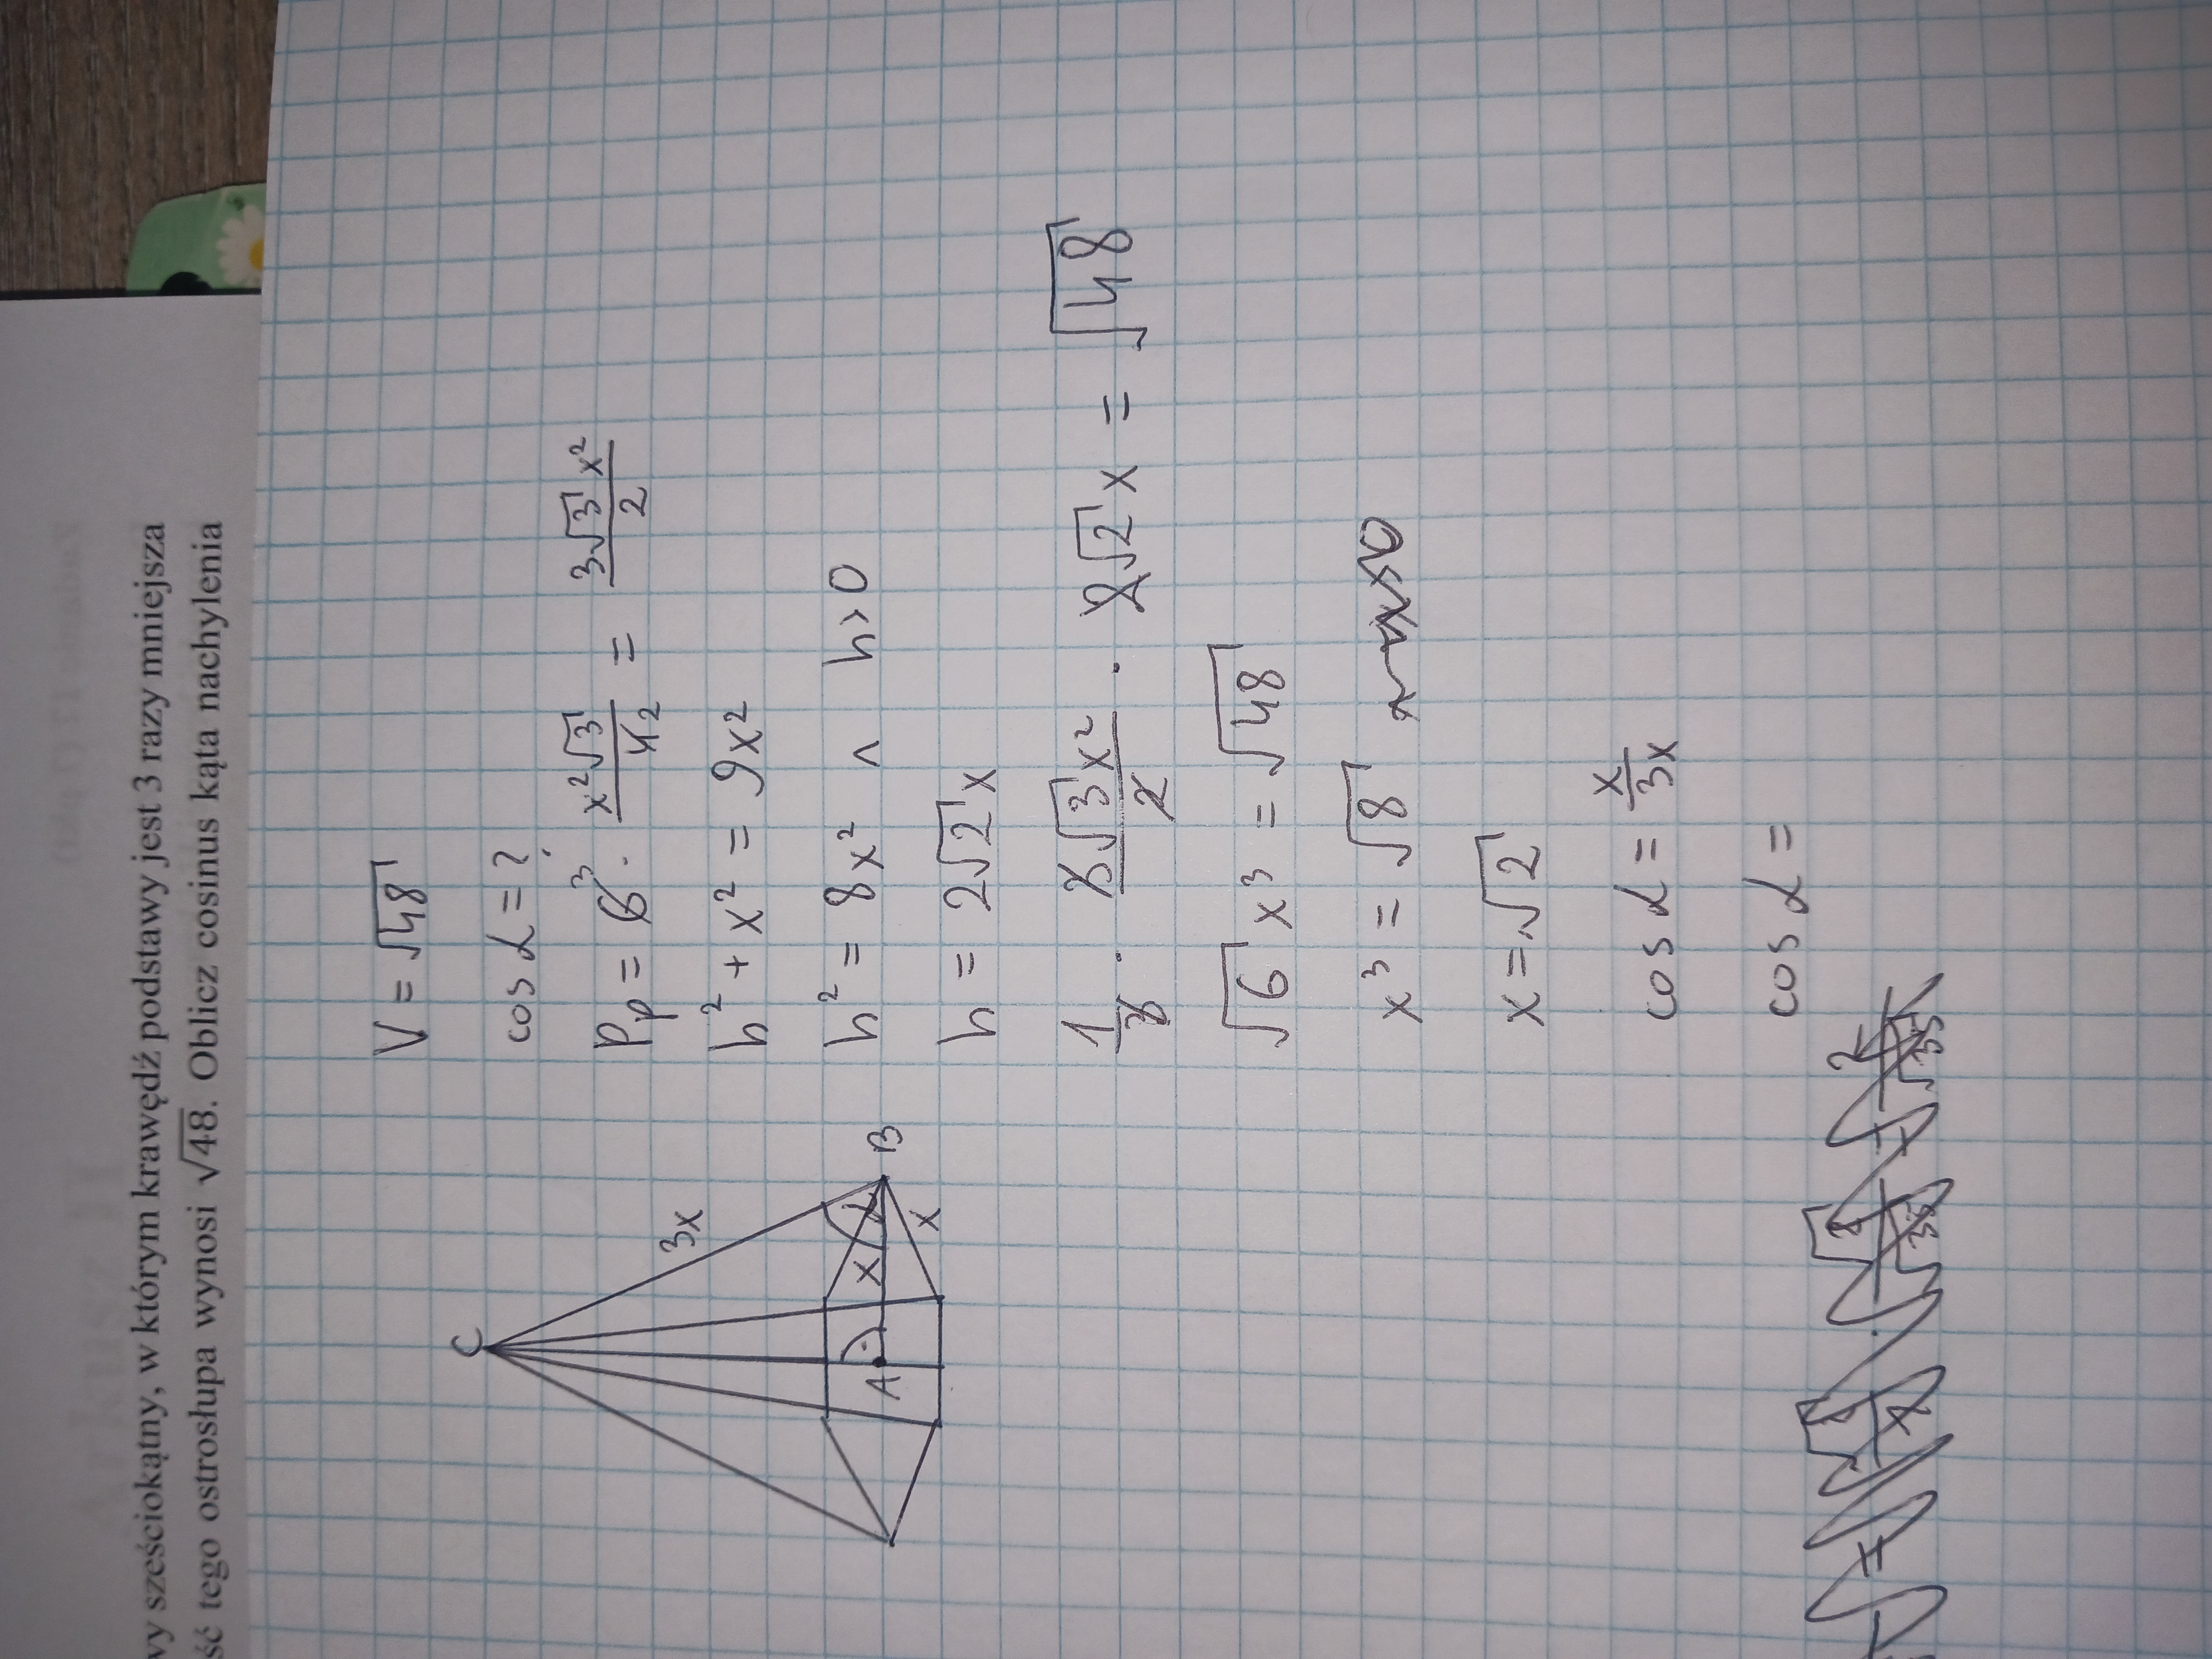 wy sześciokątny, w którym krawędź podstawy jest 3 razy mniejsza
ść tego ostrosłupa wynosi √48. Oblicz cosinus kąta nachylenia
C
3x
A
x
α
B
x
V = √48
cos α = ?
Pp = 6³ · x²√3/4₂ = 3√3 x²/2
h² + x² = 9x²
h² = 8x² ∧ h > 0
h = 2√2 x
1/3 · 3√3 x²/2 · 2√2 x = √48
√6 x³ = √48
x³ = √8
x = √2
cos α = x/3x
cos α =